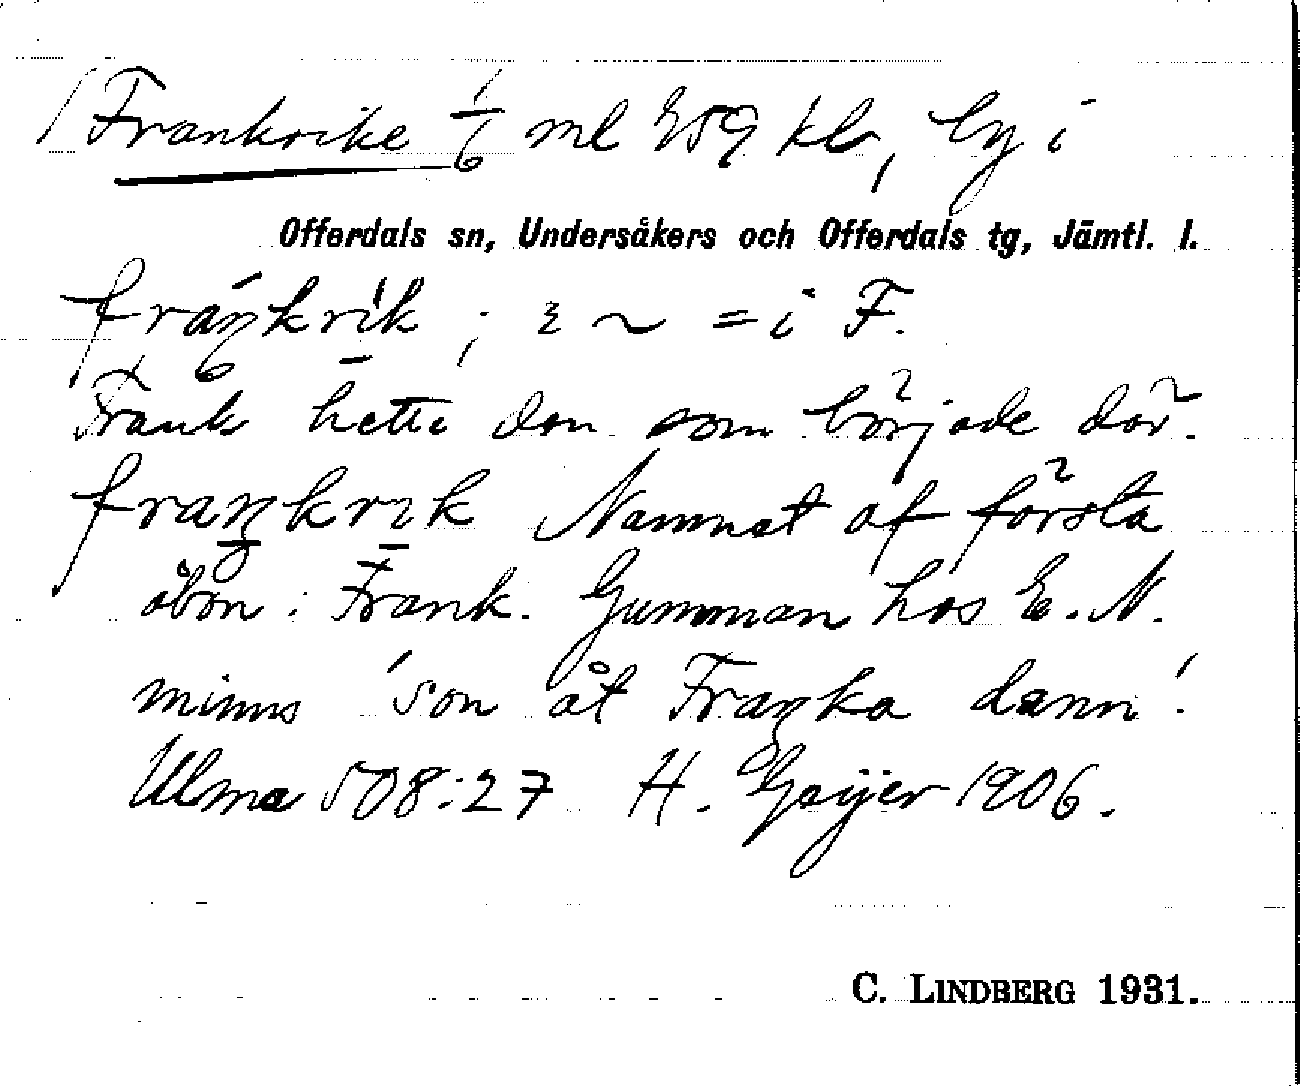 Frankrike 1/6 ml 259 kb, by i
Offerdals sn, Undersåkers och Offerdals tg, Jämtl. l.
fráŋkrìk ; ɛ ~ = i F.
Frank hette den som började där.
fraŋkrik Namnet af första
åbon: Frank. Gumman hos E. N.
minns 'son åt Fraŋka dann'.
Ulma 508:27 H. Geijer 1906.
C. LINDBERG 1931.